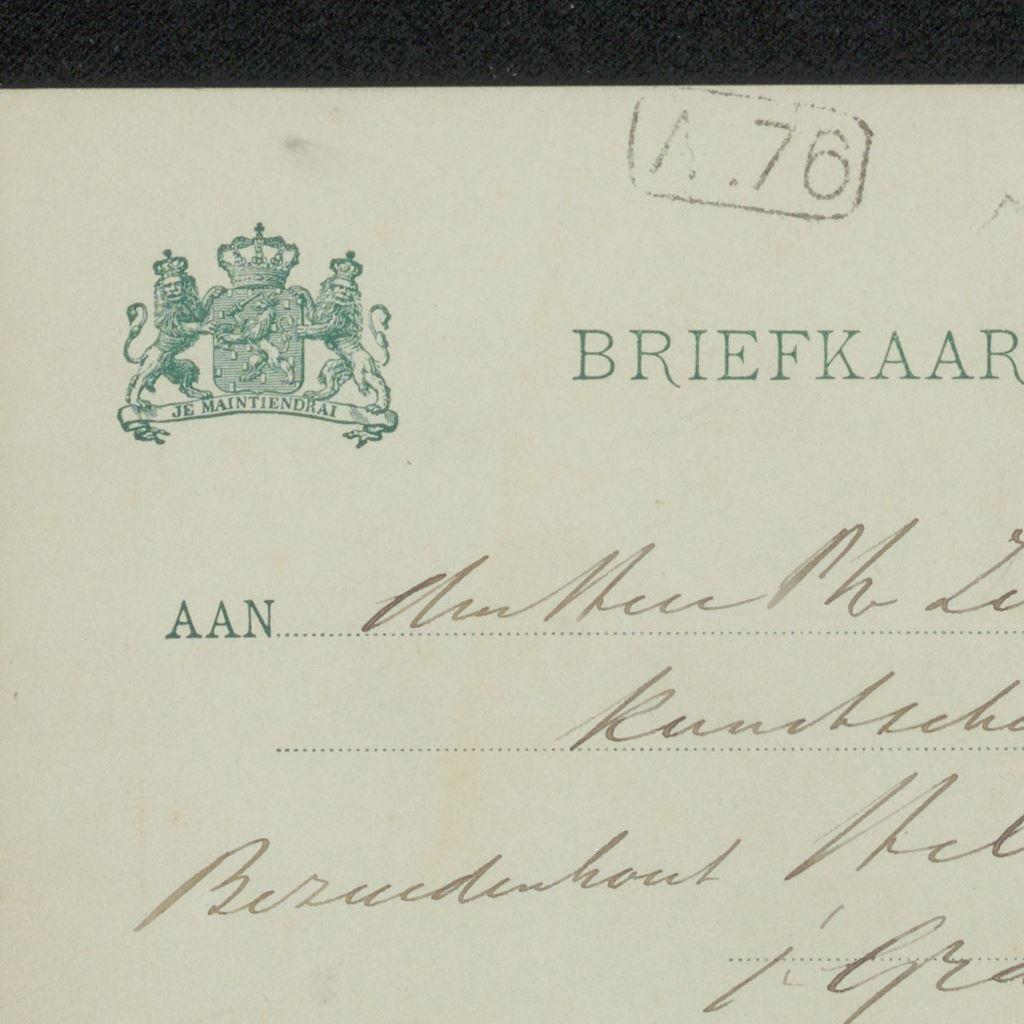 A.76
JE MAINTIENDRAI
BRIEFKAAR
AAN den Heer Ph Zi
Kunstschi
Hel
Bezuidenhout
s' Gra